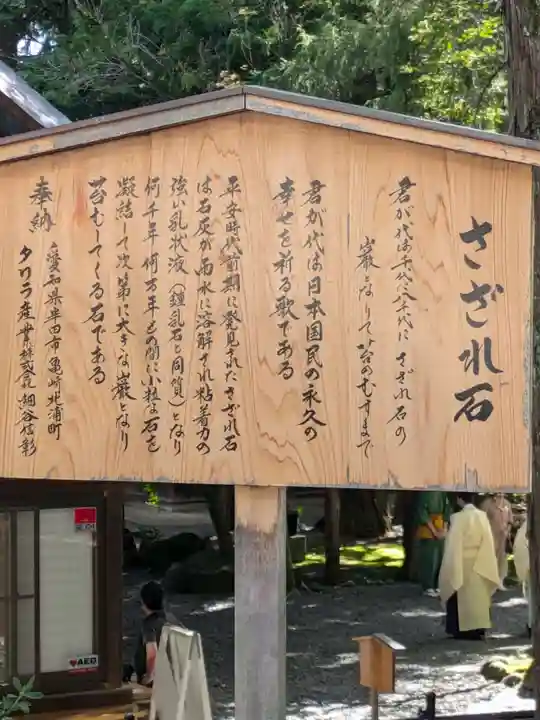 さざれ石
君が代は千代に八千代に さざれ石の
巌となりて苔のむすまで
君が代は日本国民の永久の
幸せを祈る歌である
平安時代前期に発見されたさざれ石
は石灰が雨水に溶解され粘着力の
強い乳状液(鍾乳石と同質)となり
何千年 何万年との間に小粒な石を
凝結して次第に大きな巌となり
苔むしてくる石である
奉納
愛知県半田市亀崎北浦町
タワラ産業株式会社 細谷信彰
AED